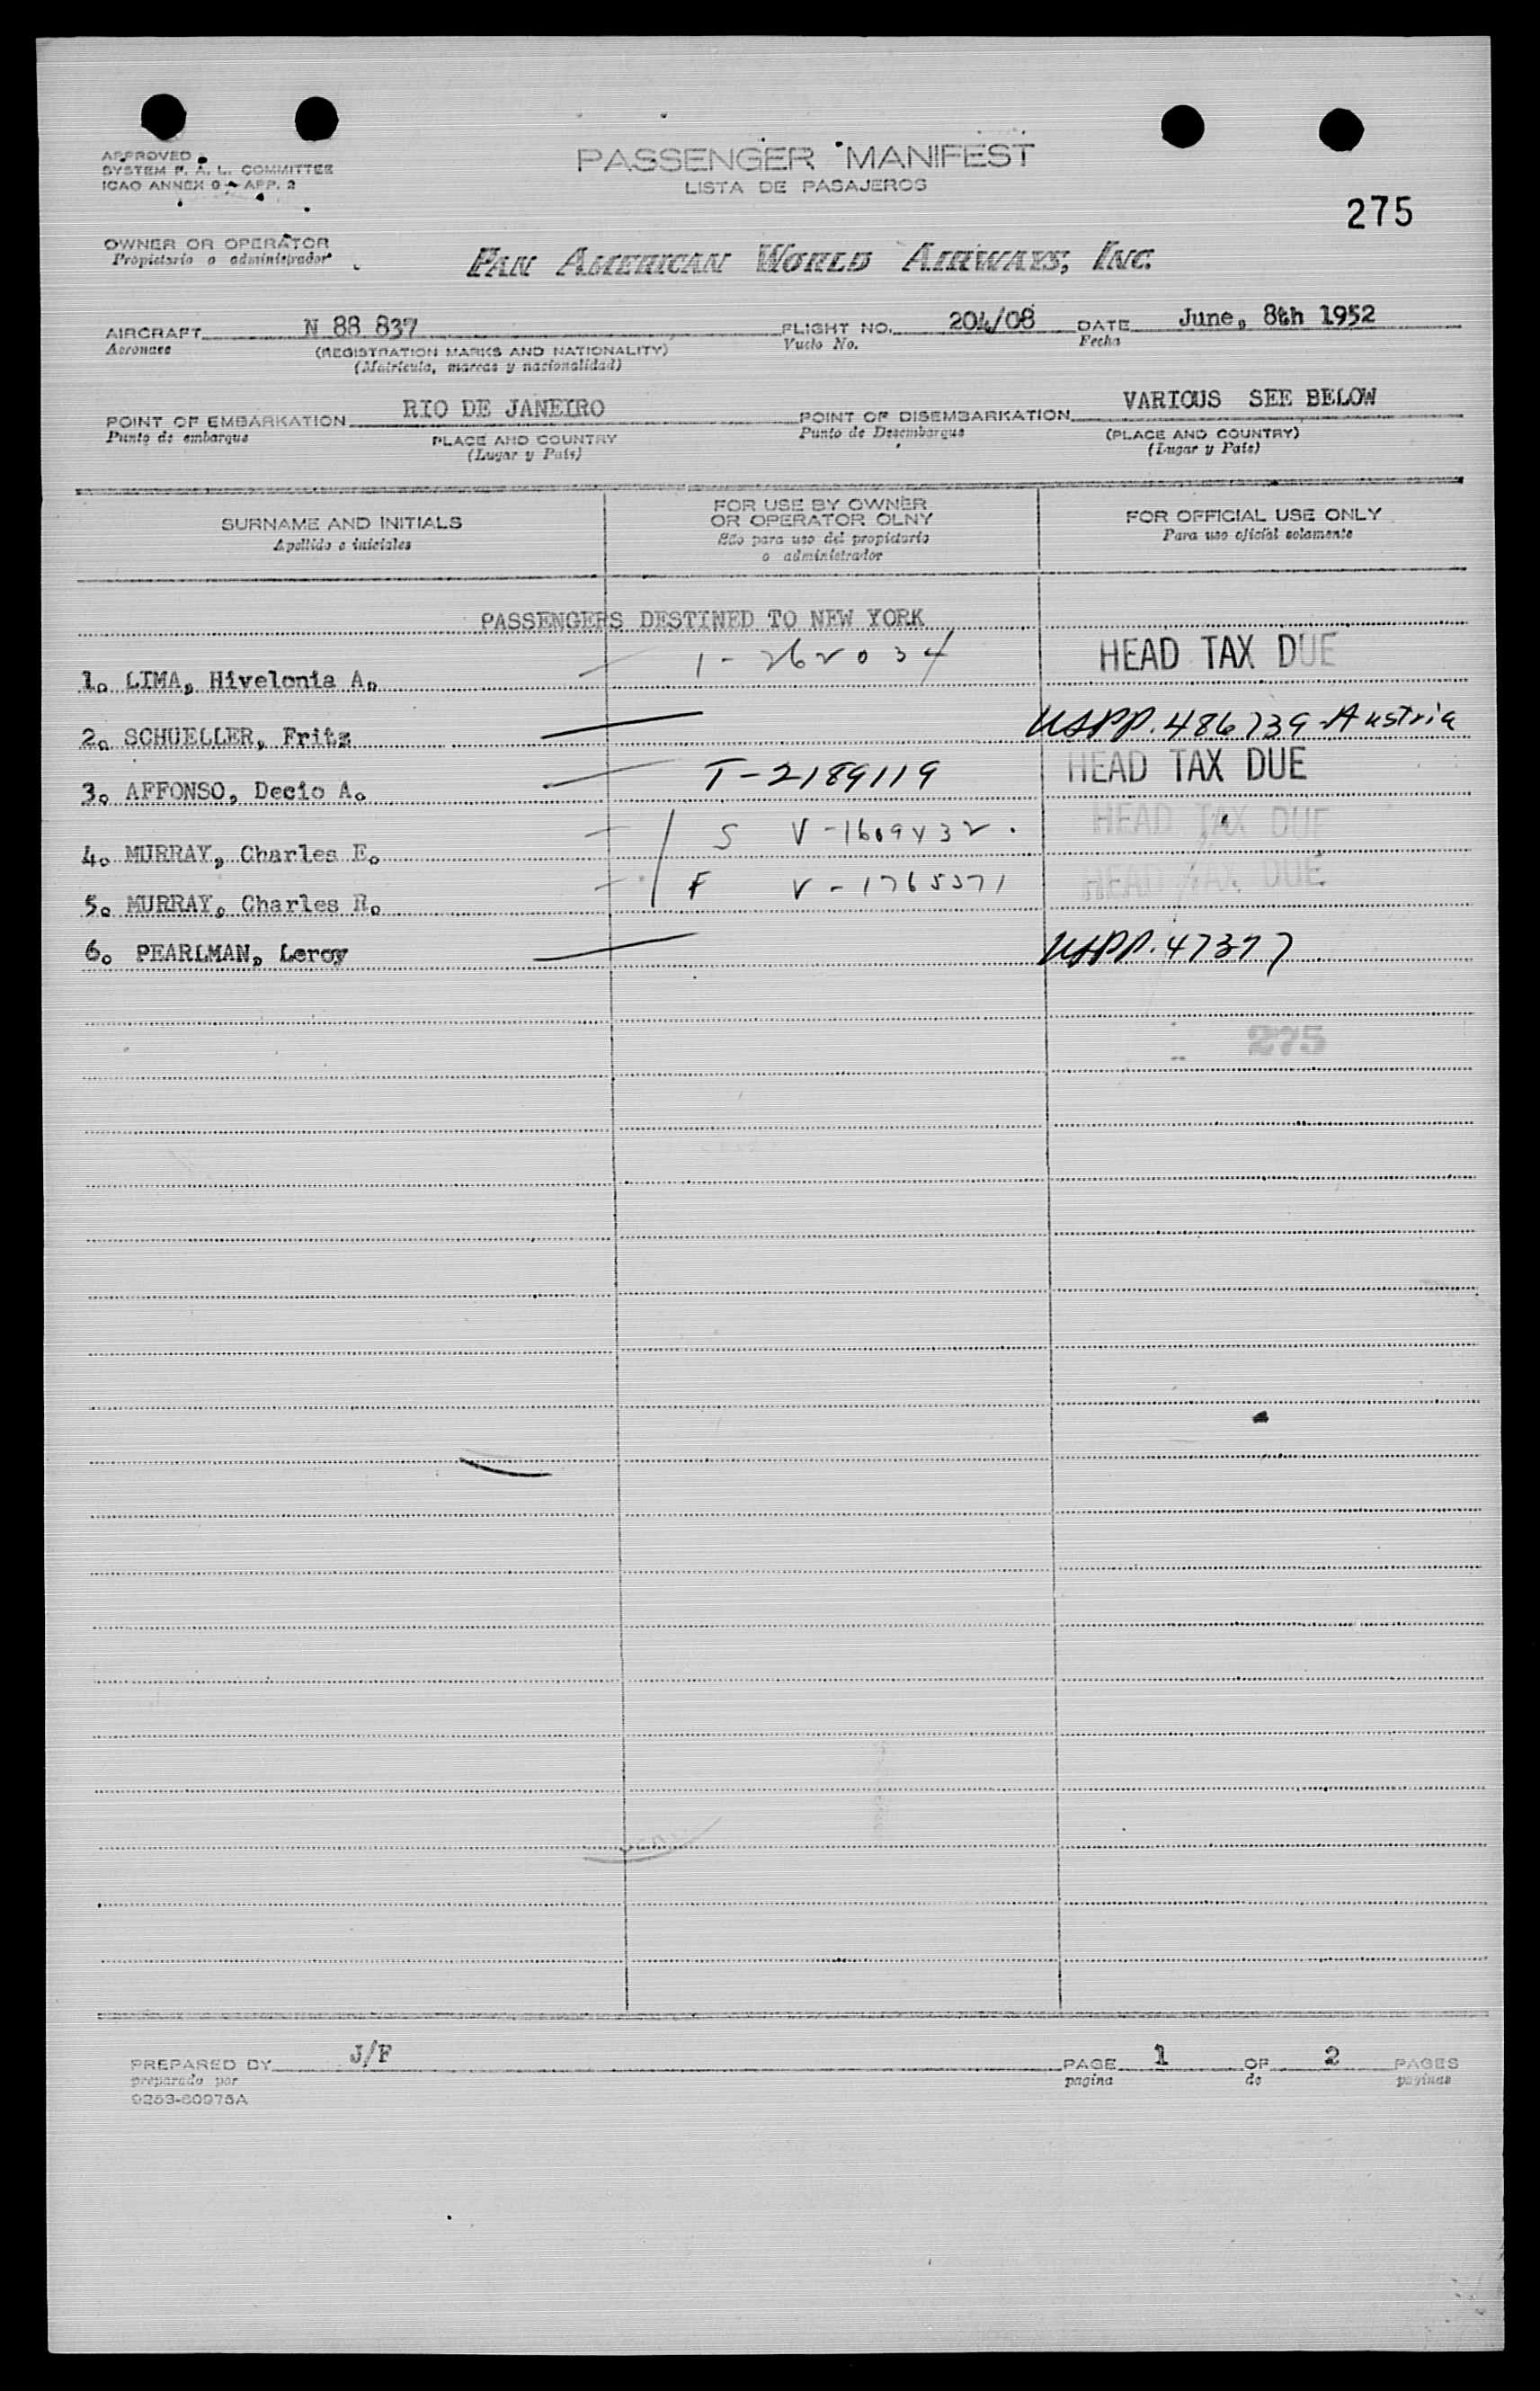 APPROVED
SYSTEM F. A. L. COMMITTEE
ICAO ANNEX 9 - APP. 2
PASSENGER MANIFEST
LISTA DE PASAJEROS
275
OWNER OR OPERATOR
Propietario o administrador
PAN AMERICAN WORLD AIRWAYS, INC.
AIRCRAFT N 88 837 FLIGHT NO. 204/08 DATE June, 8th 1952
Aeronave (REGISTRATION MARKS AND NATIONALITY) Vuelo No. Fecha
(Matricula, marcas y nacionalidad)
POINT OF EMBARKATION RIO DE JANEIRO POINT OF DISEMBARKATION VARIOUS SEE BELOW
Punto de embarque PLACE AND COUNTRY Punto de Desembarque (PLACE AND COUNTRY)
(Lugar y País) (Lugar y País)
SURNAME AND INITIALS
Apellido e iniciales
FOR USE BY OWNER
OR OPERATOR OLNY
Sólo para uso del propietario
o administrador
FOR OFFICIAL USE ONLY
Para uso oficial solamente
PASSENGERS DESTINED TO NEW YORK
1. LIMA, Hivelonia A. 1-262034 HEAD TAX DUE
2. SCHUELLER, Fritz USPP. 486739 - Austria
3. AFFONSO, Decio A. T-2189119 HEAD TAX DUE
4. MURRAY, Charles E. S V-1609432 HEAD TAX DUE
5. MURRAY, Charles R. F V-1765371 HEAD TAX DUE
6. PEARLMAN, Leroy USPP. 47377
275
PREPARED BY J/F PAGE 1 OF 2 PAGES
preparado por pagina de paginas
9253-60975A